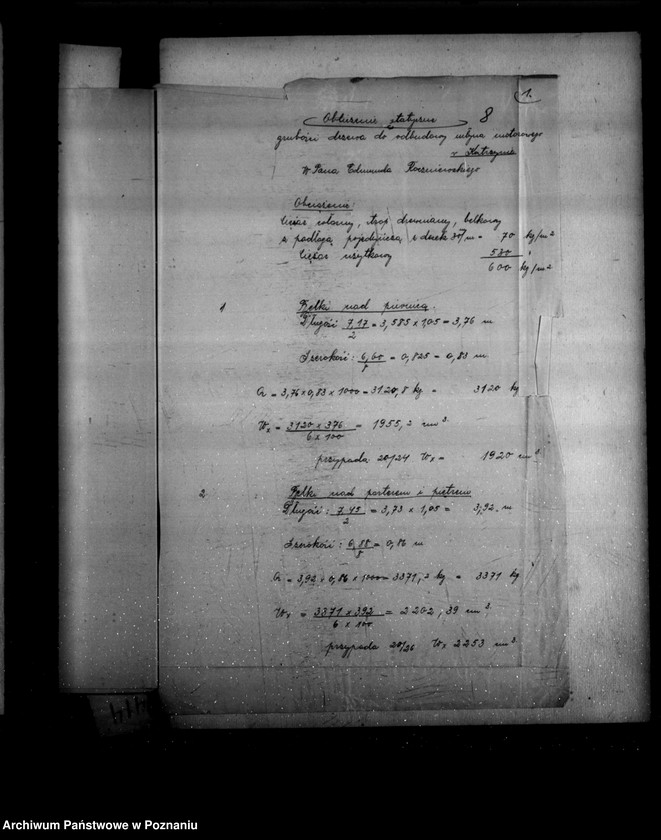 1.
Obliczenie statyczne 8
grubości drzewa do odbudowy młyna motorowego
W Pana Edmunda
Obciążenie:
Ciężar własny, strop drewniany, belkowy
z podłogą pojedynczą z desek = 70 kg/m²
Ciężar użytkowy 530 "
600 kg/m²
1 Belki nad piwnicą.
Długość 7,17/2 = 3,585 x 1,05 = 3,76 m
Szerokość: 6,60/8 = 0,825 = 0,83 m
Q = 3,76 x 0,83 x 1000 = 3120,8 kg = 3120 kg
Wx = 3120 x 376/6 x 100 = 1955,2 cm³
przypada 20/24 Wx = 1920 cm³
2 Belki nad parterem i piętrem
Długość: 7.45/2 = 3,73 x 1,05 = 3,92 m
Szerokość: 6,88/8 = 0,86 m
Q = 3,92 x 0,86 x 1000 = 3371,2 kg = 3371 kg
Wx = 3371 x 392/6 x 100 = 2202,39 cm³
przypada 20/26 Wx 2253 cm³
Archiwum Państwowe w Poznaniu